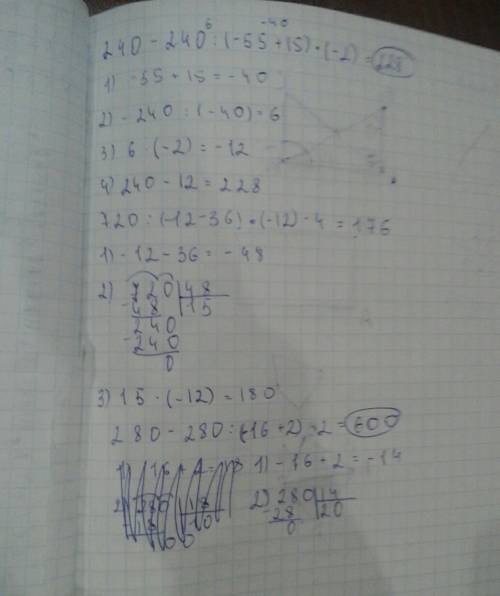 6 -40
240 - 240 : (-55 + 15) · (-2) = 228
1) -55 + 15 = -40
2) - 240 : (-40) = 6
3) 6 · (-2) = -12
4) 240 - 12 = 228
720 : (-12 - 36) · (-12) - 4 = 176
1) -12 - 36 = -48
2) 720 48
- 48 15
240
- 240
0
3) 15 · (-12) = 180
280 - 280 : (-16 + 2) · 2 = 600
1) -16 + 2 = -14
2) 280 14
- 28 20
0